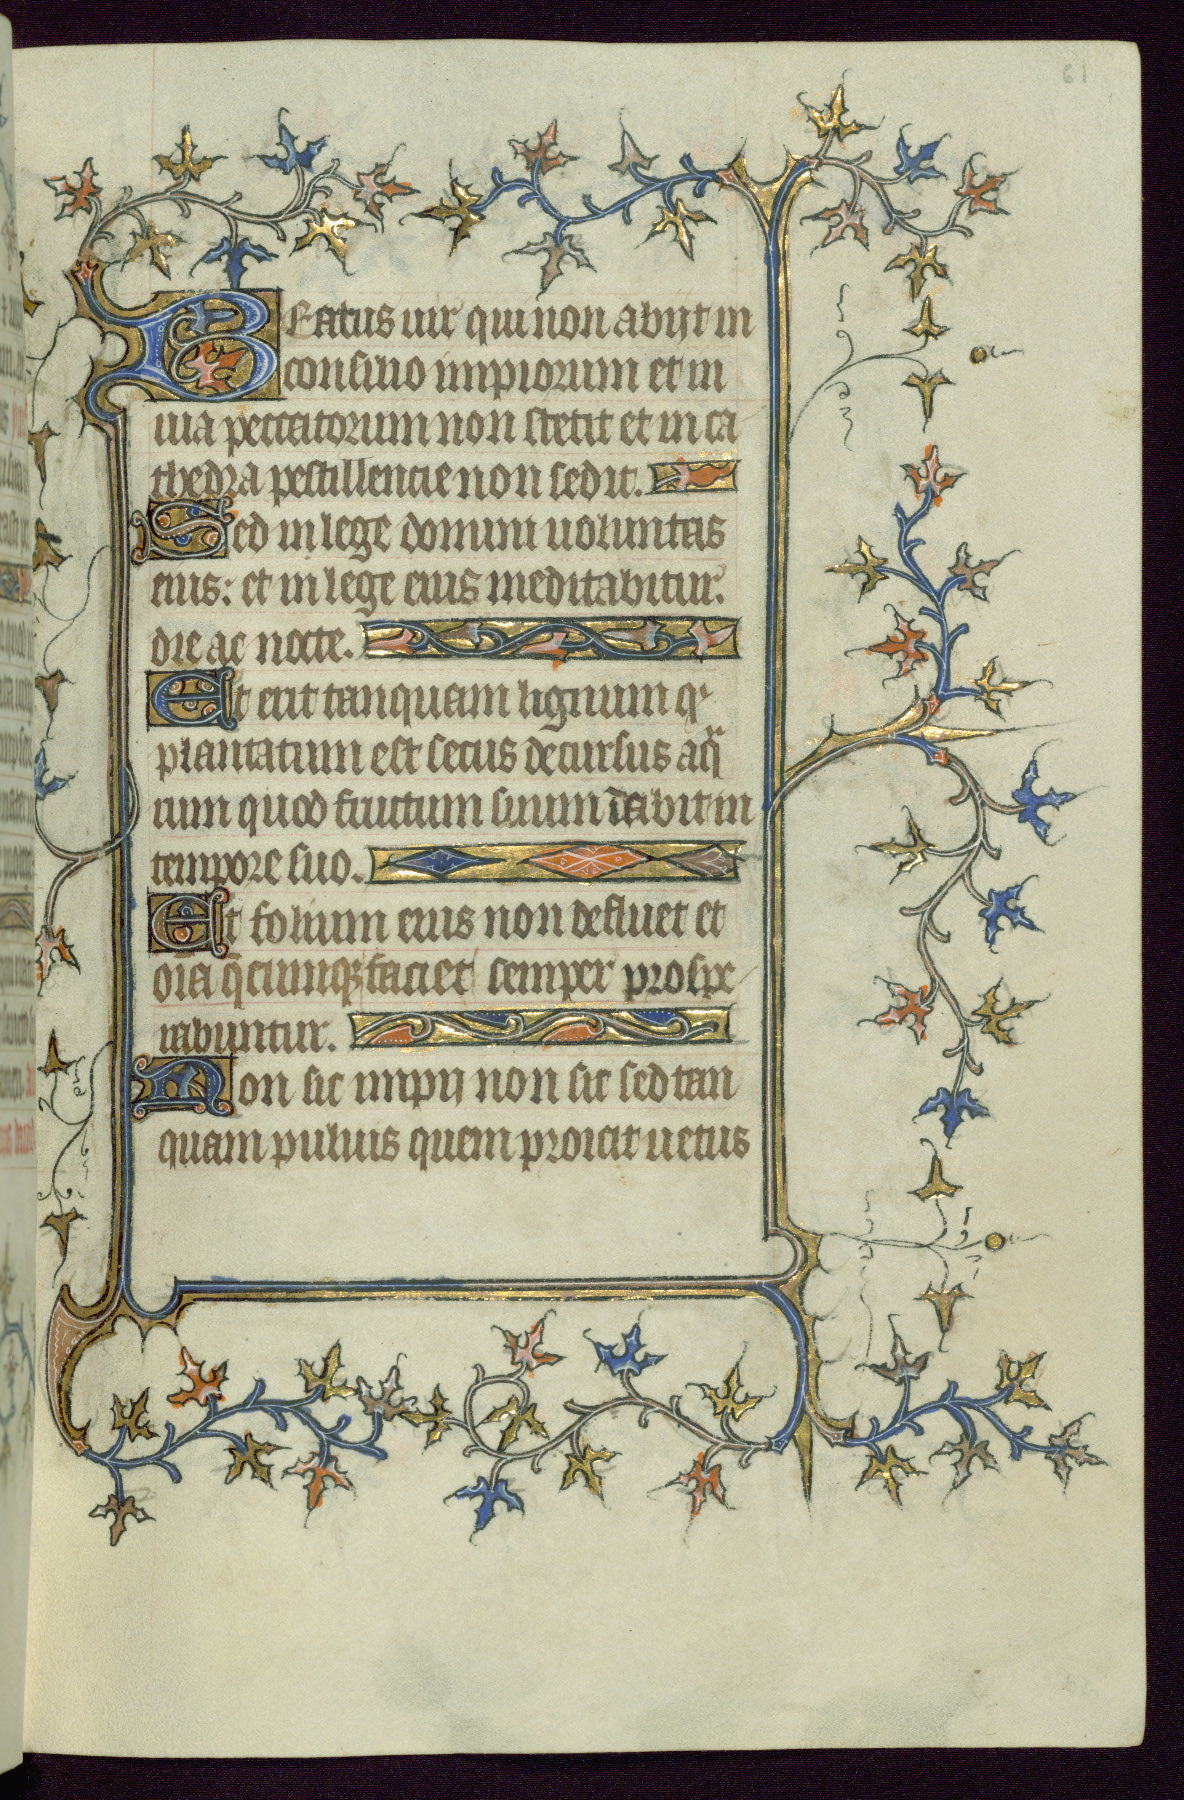 61
BEatus uir qui non abijt in
consilio impiorum et in
uia peccatorum non stetit et in ca
thedra pestillencie non sedit.
Sed in lege domini uoluntas
eius: et in lege eius meditabitur
die ac nocte.
Et erit tanquam lignum qͥ
plantatum est secus decursus aq̄
rum quod fructum suum dabit in
tempore suo.
Et folium eius non defluet et
oīa q̄cumqꝫ faciet semper prospe
rabuntur.
Non sic impij non sic sed tan
quam puluis quem proicit uētus